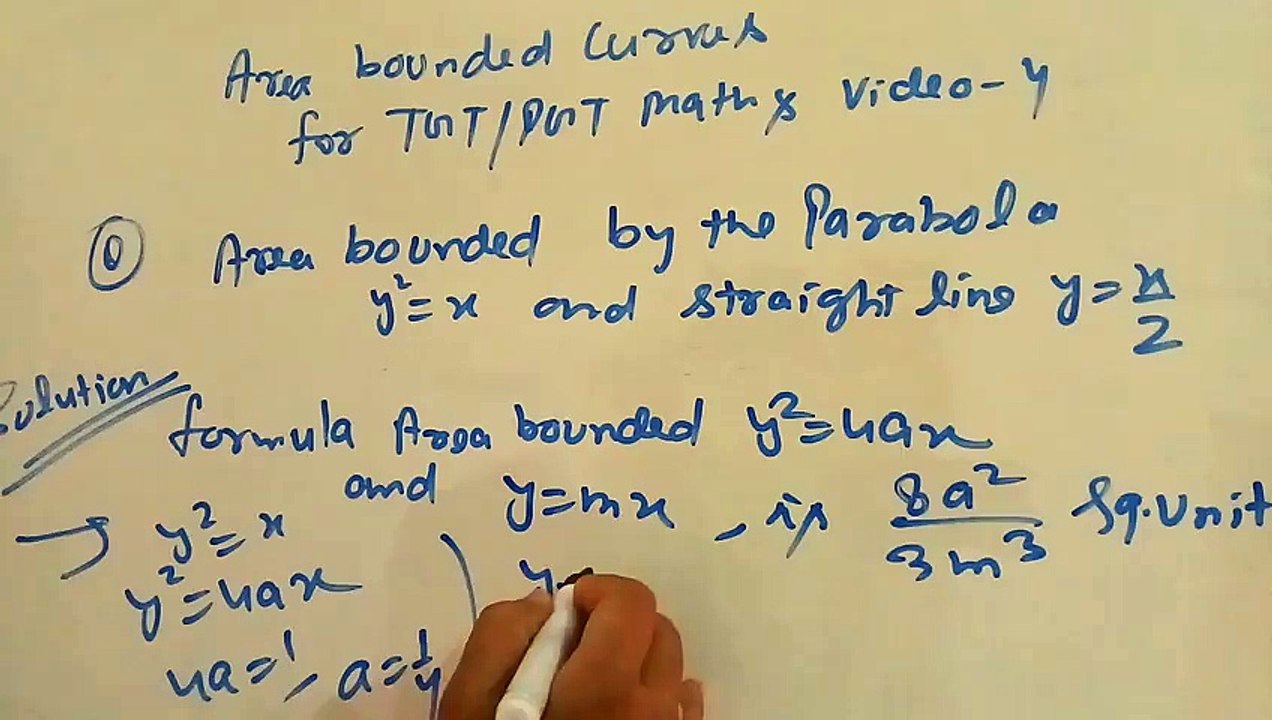 Area bounded Curves
for TGT/PGT Maths Video-4
Q Area bounded by the Parabola
y²=x and straight line y=x/2
Solution
formula Area bounded y²=4ax
and y=mx, is 8a²/3m³ Sq.Unit
→ y²=x
y²=4ax
4a=1, a=1/4
y=